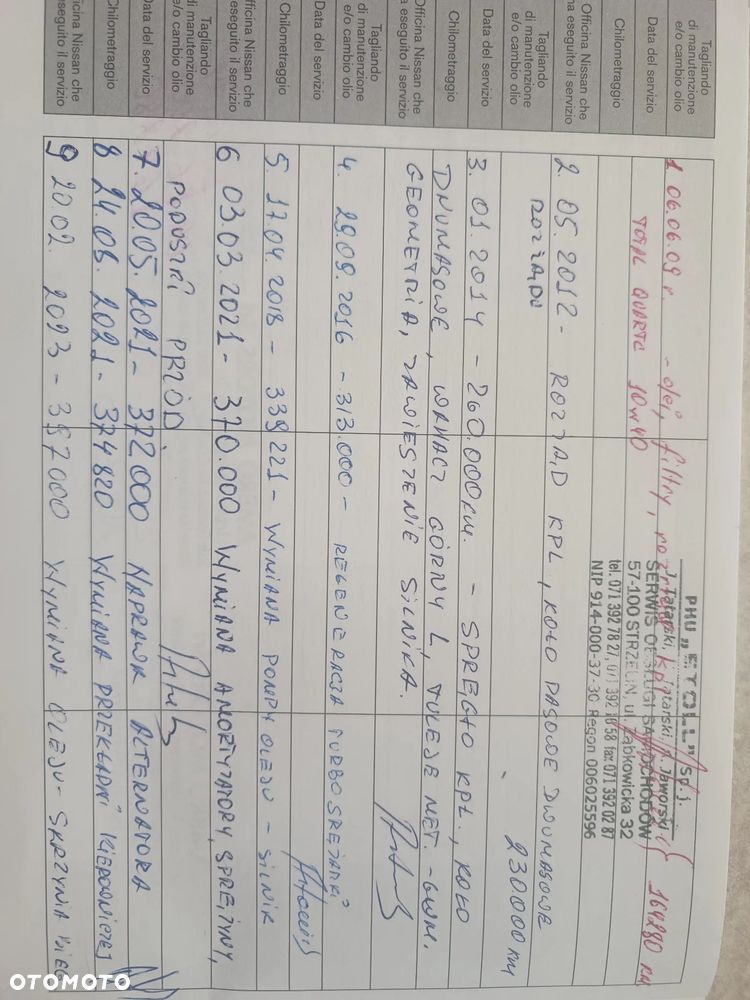 Tagliando
di manutenzione
e/o cambio olio
Data del servizio
Chilometraggio
Officina Nissan che
ha eseguito il servizio
Tagliando
di manutenzione
e/o cambio olio
Data del servizio
Chilometraggio
Officina Nissan che
ha eseguito il servizio
Tagliando
di manutenzione
e/o cambio olio
Data del servizio
Chilometraggio
Officina Nissan che
eseguito il servizio
Tagliando
di manutenzione
e/o cambio olio
Data del servizio
Chilometraggio
icina Nissan che
eseguito il servizio
1 06.06.09 r. - olej, filtry, rozrząd kpl 164280 km
TOTAL QUARTZ 10W40
PHU "ETOLL" sp. j.
J. Tatarski, K. Tatarski, J. Jaworski
SERWIS OBSŁUGI SAMOCHODÓW
57-100 STRZELIN, ul. Ząbkowicka 32
tel. 071 392 78 27, 071 392 16 58 fax 071 392 02 87
NIP 914-000-37-30 Regon 006025596
2. 05. 2012 - ROZRZĄD KPL, KOŁO PASOWE DWUMASOWE
ROZRZĄDU 230000 KM
3. 01. 2014 - 260.000 KM. - SPRĘGŁO KPL., KOŁO
DWUMASOWE, WAHACZ GÓRNY L, TULEJE MET. - GUM.
GEOMETRIA, ZAWIESZENIE SILNIKA.
4. 29.09. 2016 - 313.000 - REGENERACJA TURBOSPRĘŻARKI
5. 17.04. 2018 - 339 221 - WYMIANA POMPY OLEJU - SILNIK
6 03.03. 2021 - 370.000 WYMIANA AMORTYZATORY, SPRĘŻYNY,
PODUSZKI PRZÓD
7. 20.05. 2021 - 372 000 NAPRAWA ALTERNATORA
8 24.08. 2021 - 374 820 WYMIANA PRZEKŁADNI KIEROWNICZEJ
9 20 02. 2023 - 387 000 WYMIANA OLEJU - SKRZYNIA BIEG
OTOMOTO